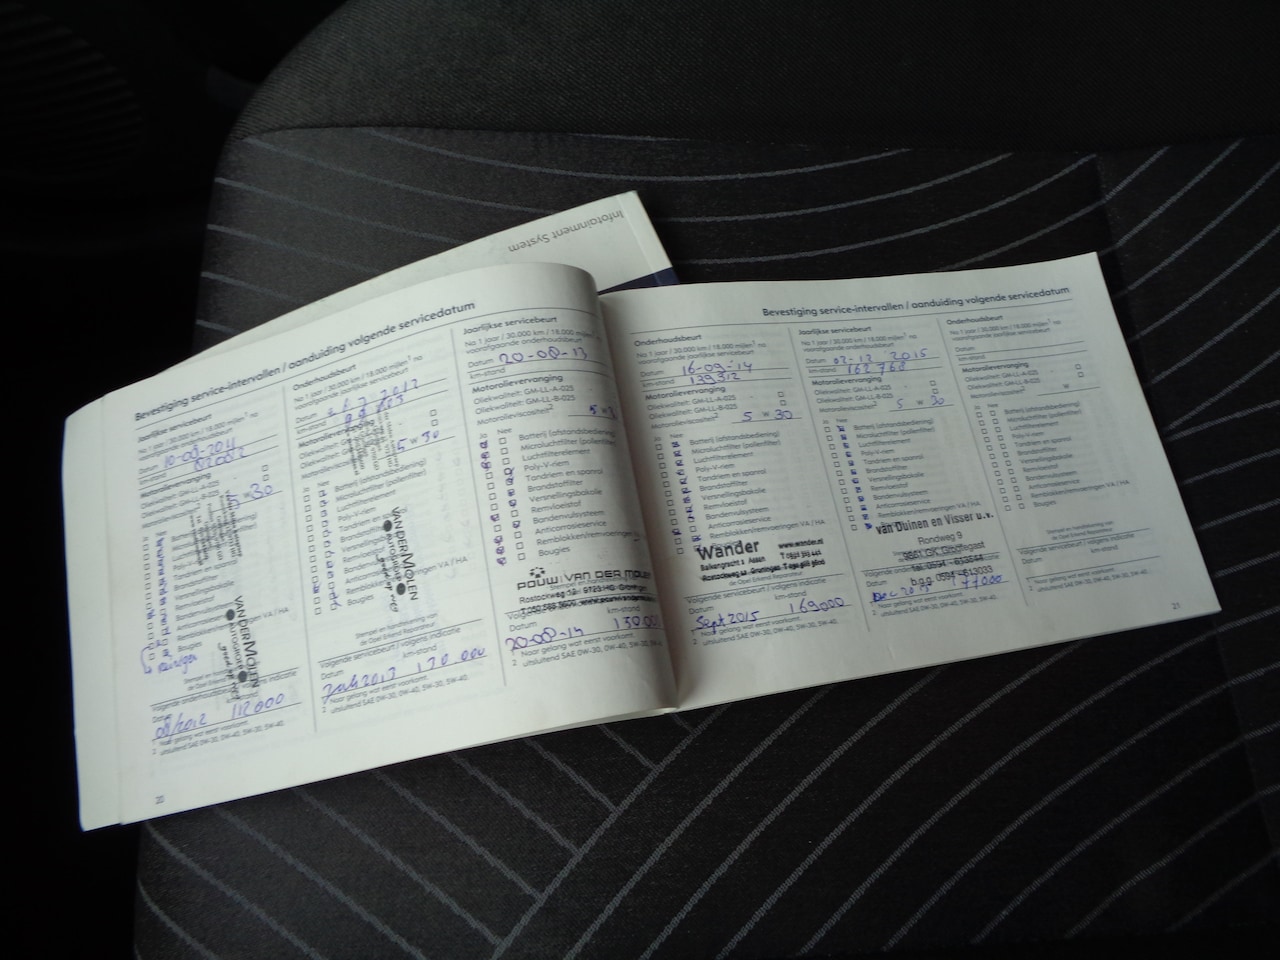 Infotainment System
Bevestiging service-intervallen / aanduiding volgende servicedatum
Jaarlijkse servicebeurt
No 1 jaar / 30.000 km / 18.000 mijlen¹ na
voorafgaande onderhoudsbeurt
Datum 10-08-2011
km-stand
Motorolievervanging
Oliekwaliteit: GM-LL-A-025
Oliekwaliteit: GM-LL-B-025
Motorolieviscositeit² 5 w 30
Tandriem en spanrol
Brandstoffilter
Versnellingsbakolie
Remvloeistof
Bandenvulsysteem
Anticorrosieservice
Remblokken/remvoeringen VA / HA
Bougies
VAN DER MOLEN
AUTOGROEP
goed op weg
Datum
08/2012 112000
¹ Naar gelang wat eerst voorkomt.
² uitsluitend SAE 0W-30, 0W-40, 5W-30, 5W-40.
20
Onderhoudsbeurt
No 1 jaar / 30.000 km / 18.000 mijlen¹ na
voorafgaande jaarlijkse servicebeurt
Datum
km-stand
Motorolievervanging
Oliekwaliteit: GM-LL-A-025
Oliekwaliteit: GM-LL-B-025
Motorolieviscositeit² 5 w 30
Ja Nee
Batterij (afstandsbediening)
Microluchtfilter (pollenfilter)
Luchtfilterelement
Poly-V-riem
Tandriem en spanrol
Brandstoffilter
Versnellingsbakolie
Remvloeistof
Bandenvulsysteem
Anticorrosieservice
Remblokken/remvoeringen VA / HA
Bougies
VAN DER MOLEN
AUTOGROEP
goed op weg
Stempel en handtekening van
de Opel Erkend Reparateur
Volgende servicebeurt / volgens indicatie
Datum km-stand
Juli 2013 130.000
¹ Naar gelang wat eerst voorkomt.
² uitsluitend SAE 0W-30, 0W-40, 5W-30, 5W-40.
Jaarlijkse servicebeurt
No 1 jaar / 30.000 km / 18.000 mijlen¹ na
voorafgaande onderhoudsbeurt
Datum 20-08-13
km-stand
Motorolievervanging
Oliekwaliteit: GM-LL-A-025
Oliekwaliteit: GM-LL-B-025
Motorolieviscositeit² 5 w 3
Ja Nee
Batterij (afstandsbediening)
Microluchtfilter (pollenfilter)
Luchtfilterelement
Poly-V-riem
Tandriem en spanrol
Brandstoffilter
Versnellingsbakolie
Remvloeistof
Bandenvulsysteem
Anticorrosieservice
Remblokken/remvoeringen
Bougies
POUW VAN DER MOLEN
Rostockweg 12 - 9723 HG Groningen
Volgende
Datum km-stand
20-08-14 15000
¹ Naar gelang wat eerst voorkomt.
² uitsluitend SAE 0W-30, 0W-40, 5W-30, 5W
Bevestiging service-intervallen / aanduiding volgende servicedatum
Onderhoudsbeurt
No 1 jaar / 30.000 km / 18.000 mijlen¹ na
voorafgaande jaarlijkse servicebeurt
Datum 16-09-14
km-stand 139312
Motorolievervanging
Oliekwaliteit: GM-LL-A-025
Oliekwaliteit: GM-LL-B-025
Motorolieviscositeit² 5 w 30
Ja Nee
Batterij (afstandsbediening)
Microluchtfilter (pollenfilter)
Luchtfilterelement
Poly-V-riem
Tandriem en spanrol
Brandstoffilter
Versnellingsbakolie
Remvloeistof
Bandenvulsysteem
Anticorrosieservice
Remblokken/remvoeringen VA / HA
Bougies
Wander www.wander.nl
Balkengracht 2 Assen
Rostockweg Groningen
de Opel Erkend Reparateur
Volgende servicebeurt / volgens indicatie
Datum km-stand
Sept 2015 169000
¹ Naar gelang wat eerst voorkomt.
² uitsluitend SAE 0W-30, 0W-40, 5W-30, 5W-40.
Jaarlijkse servicebeurt
No 1 jaar / 30.000 km / 18.000 mijlen¹ na
voorafgaande onderhoudsbeurt
Datum 02-12 2015
km-stand 162768
Motorolievervanging
Oliekwaliteit: GM-LL-A-025
Oliekwaliteit: GM-LL-B-025
Motorolieviscositeit² 5 w 30
Ja Nee
Batterij (afstandsbediening)
Microluchtfilter (pollenfilter)
Luchtfilterelement
Poly-V-riem
Tandriem en spanrol
Brandstoffilter
Versnellingsbakolie
Remvloeistof
Bandenvulsysteem
Anticorrosieservice
Remblokken/remvoeringen VA / HA
van Duinen en Visser u.v.
Rondweg 9
9861 GK Grootegast
tel. 0594 - 613544
b.g.g. 0594 - 613033
Datum
177000
¹ Naar gelang wat eerst voorkomt.
² uitsluitend SAE 0W-30, 0W-40, 5W-30, 5W-40.
Onderhoudsbeurt
No 1 jaar / 30.000 km / 18.000 mijlen¹ na
voorafgaande jaarlijkse servicebeurt
Datum
km-stand
Motorolievervanging
Oliekwaliteit: GM-LL-A-025
Oliekwaliteit: GM-LL-B-025
Motorolieviscositeit² w
Ja Nee
Batterij (afstandsbediening)
Microluchtfilter (pollenfilter)
Luchtfilterelement
Poly-V-riem
Tandriem en spanrol
Brandstoffilter
Versnellingsbakolie
Remvloeistof
Bandenvulsysteem
Anticorrosieservice
Remblokken/remvoeringen VA / HA
Bougies
Stempel en handtekening van
de Opel Erkend Reparateur
Volgende servicebeurt / volgens indicatie
Datum km-stand
¹ Naar gelang wat eerst voorkomt.
² uitsluitend SAE 0W-30, 0W-40, 5W-30, 5W-40.
21